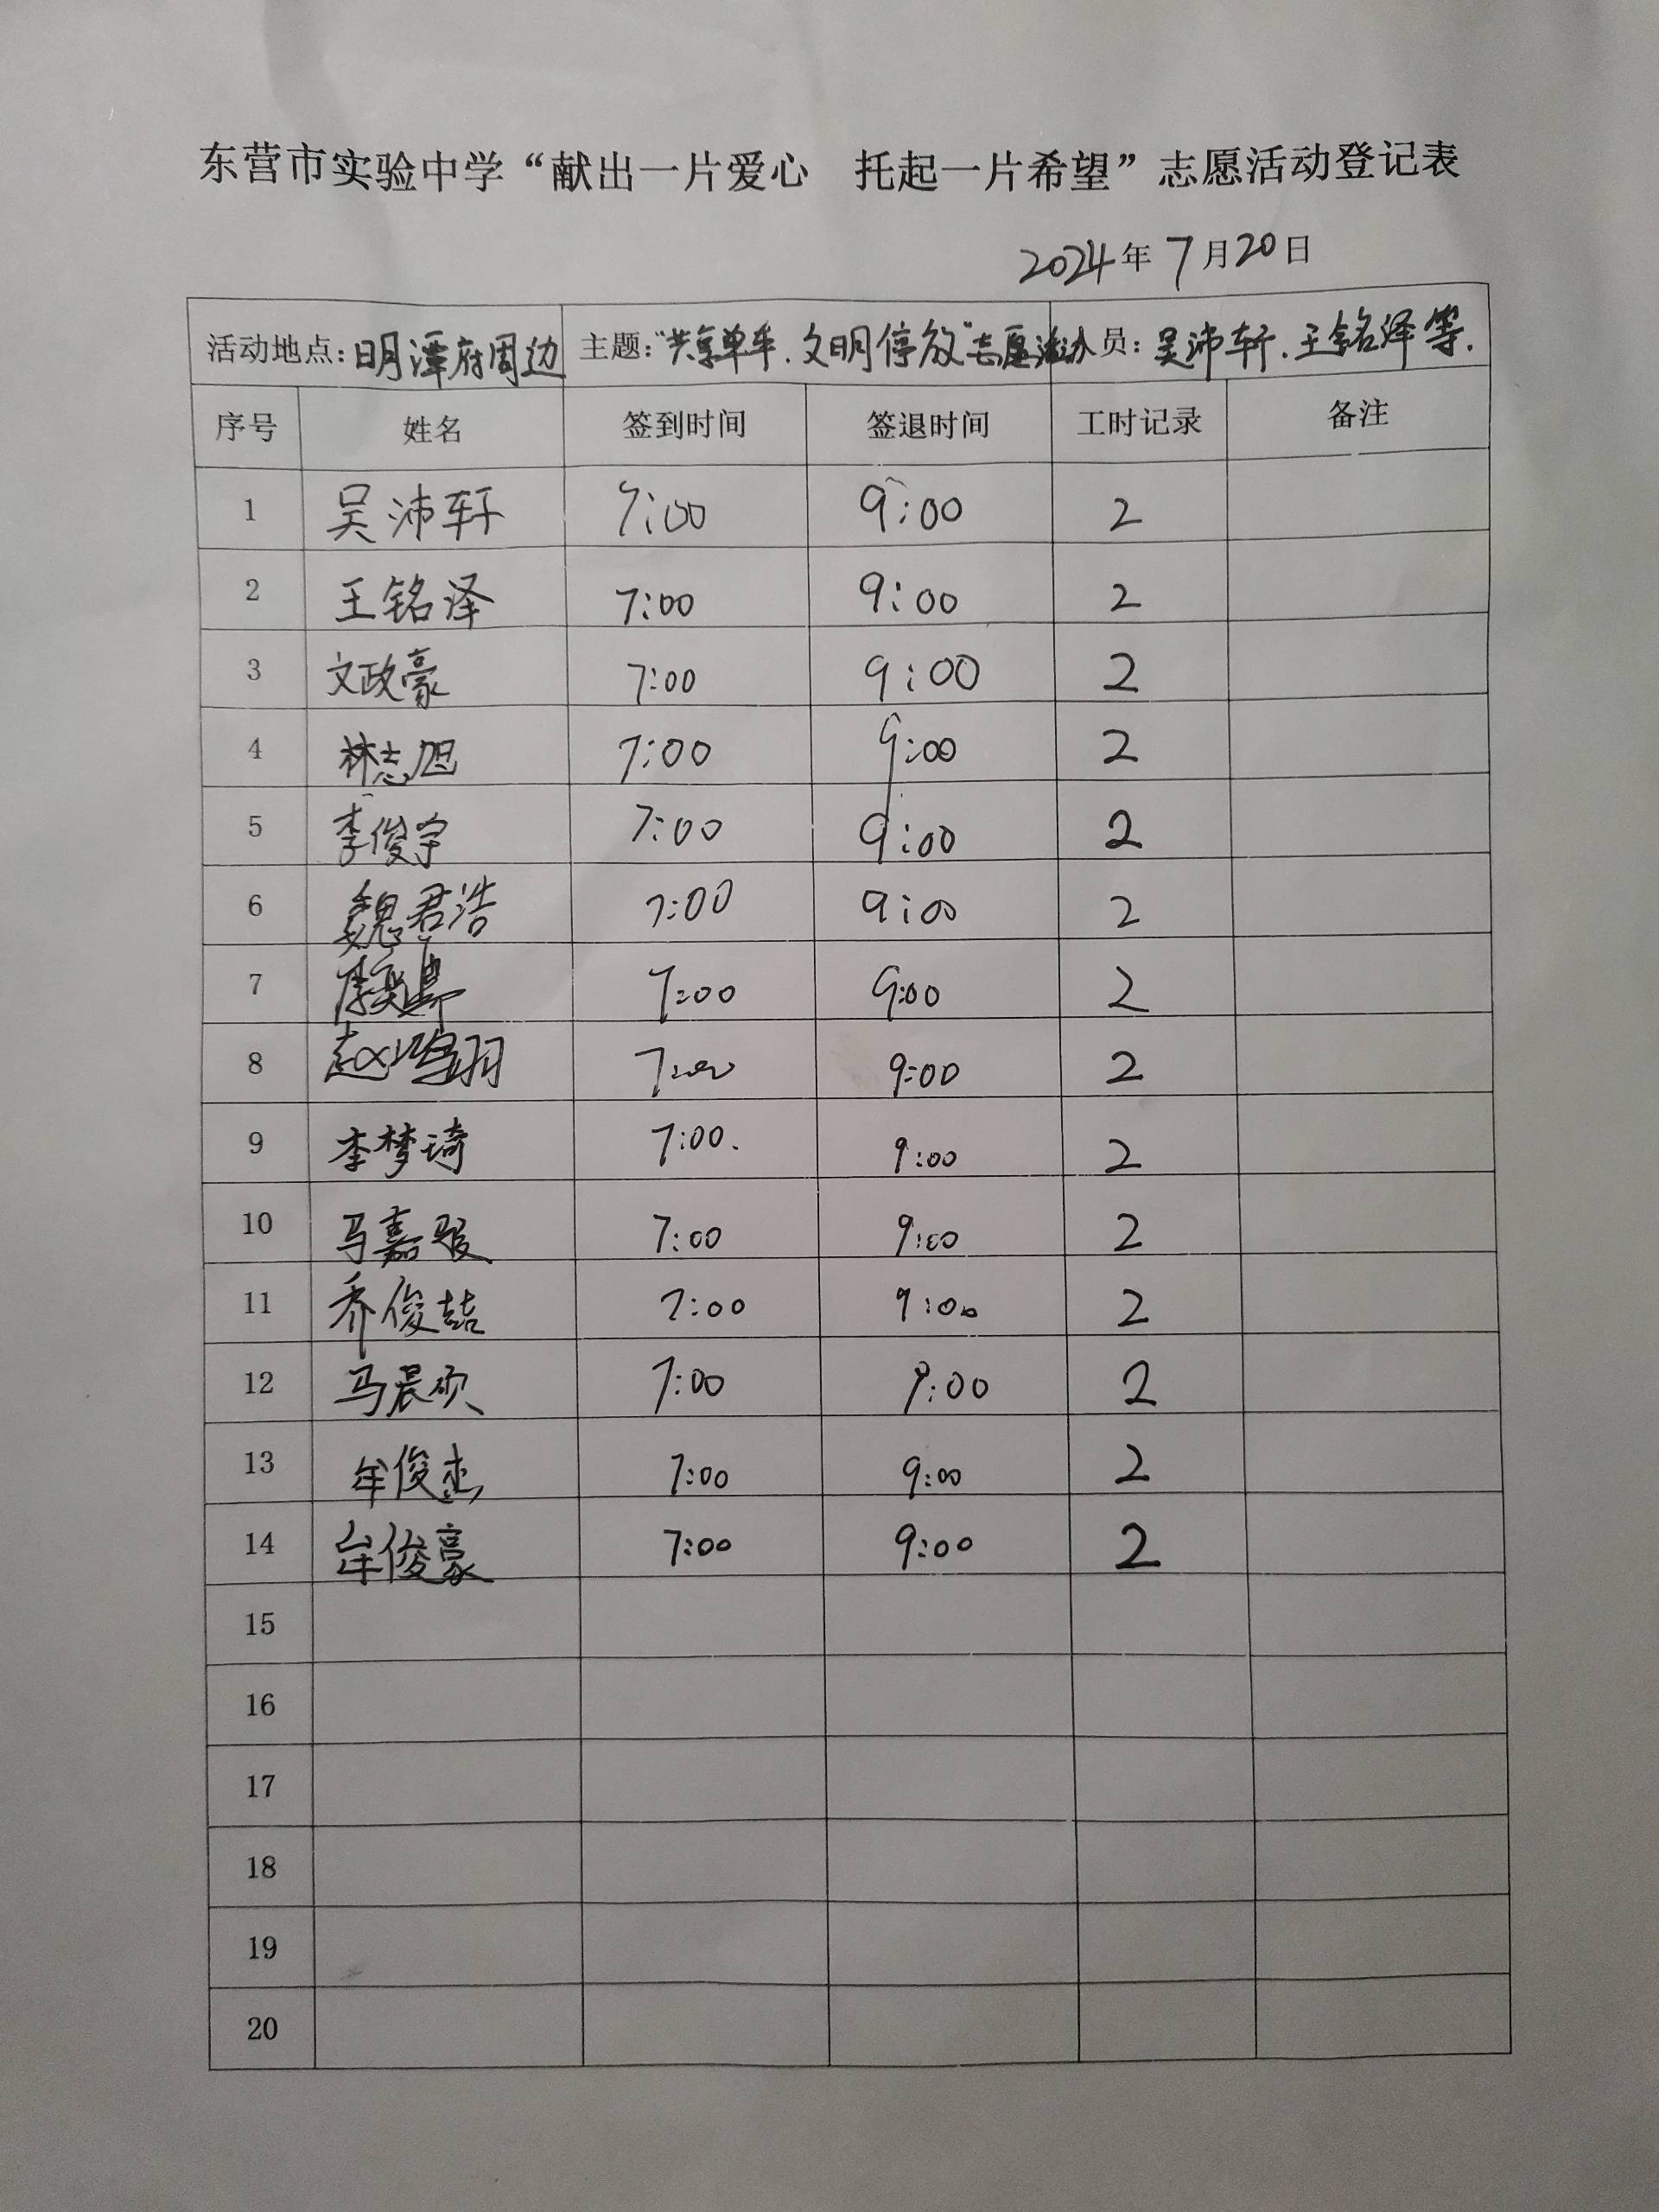 东营市实验中学“献出一片爱心 托起一片希望”志愿活动登记表
2024年7月20日
活动地点：明潭府周边 主题：“共享单车．文明停放”志愿活动 人员：吴沛轩．王铭泽等．
序号 姓名 签到时间 签退时间 工时记录 备注
1 吴沛轩 7:00 9:00 2
2 王铭泽 7:00 9:00 2
3 文政豪 7:00 9:00 2
4 林志旭 7:00 9:00 2
5 李俊宇 7:00 9:00 2
6 魏君浩 7:00 9:00 2
7 7:00 9:00 2
8 7:00 9:00 2
9 李梦琦 7:00. 9:00 2
10 马嘉骏 7:00 9:00 2
11 乔俊喆 7:00 9:00 2
12 马晨硕 7:00 9:00 2
13 牟俊杰 7:00 9:00 2
14 牟俊豪 7:00 9:00 2
15
16
17
18
19
20